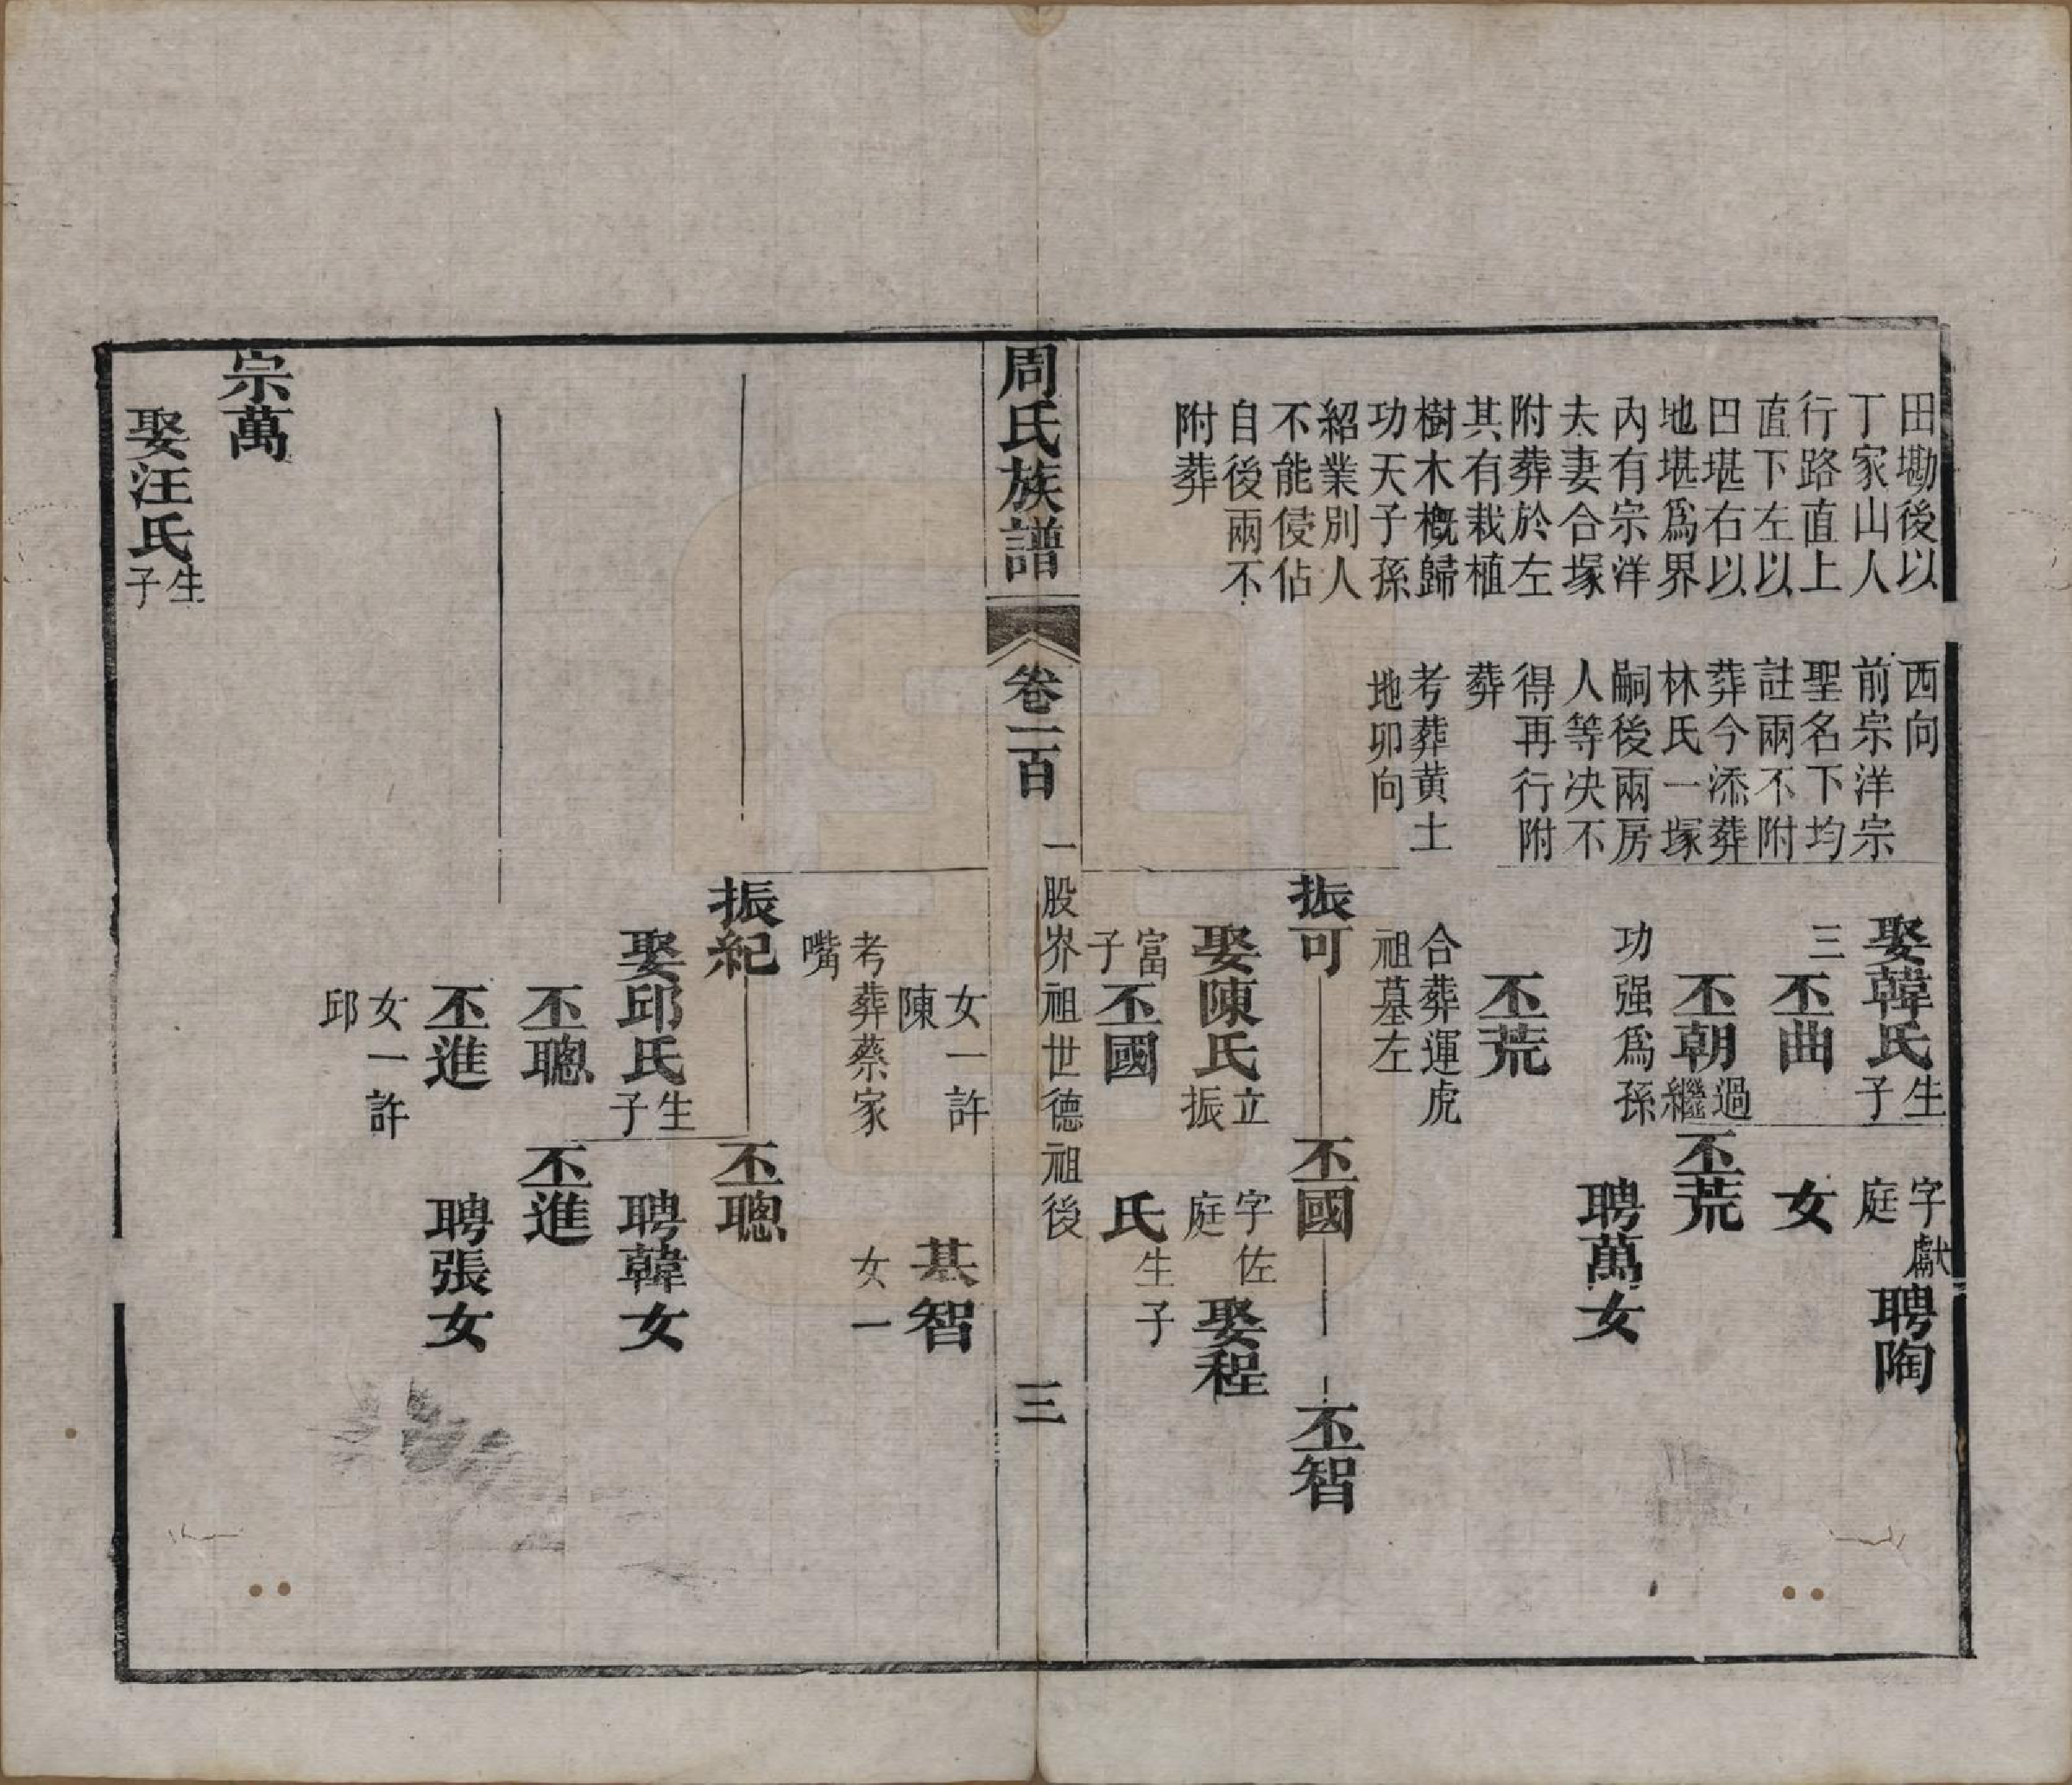 田墈後以
丁家山人
行路直上
直下左以
田堪右以
地堪爲界
內有宗洋
夫妻合塚
附葬於左
其有栽植
樹木槪歸
功天子孫
紹業別人
不能侵佔
自後兩不
附葬
西向
前宗洋宗
聖名下均
註兩不附
葬今添葬
林氏一塚
嗣後兩房
人等决不
得再行附
葬
考葬黄土
地卯向
娶韓氏生子
三
丕曲
丕朝過繼
功强爲孫
丕荒
合葬運虎
祖墓左
振可
娶陳氏立振
富子
丕國
字獻庭
聘陶
女
丕荒
聘萬女
丕國
字佐庭
娶程
氏
生子
丕智
周氏族譜
卷一百
一股岕祖世德祖後
三
女一許
陳
考葬蔡家
嘴
基智
女一
振紀
娶邱氏生子
丕聰
丕進
女一許
邱
丕聰
聘韓女
丕進
聘張女
宗萬
娶汪氏生子